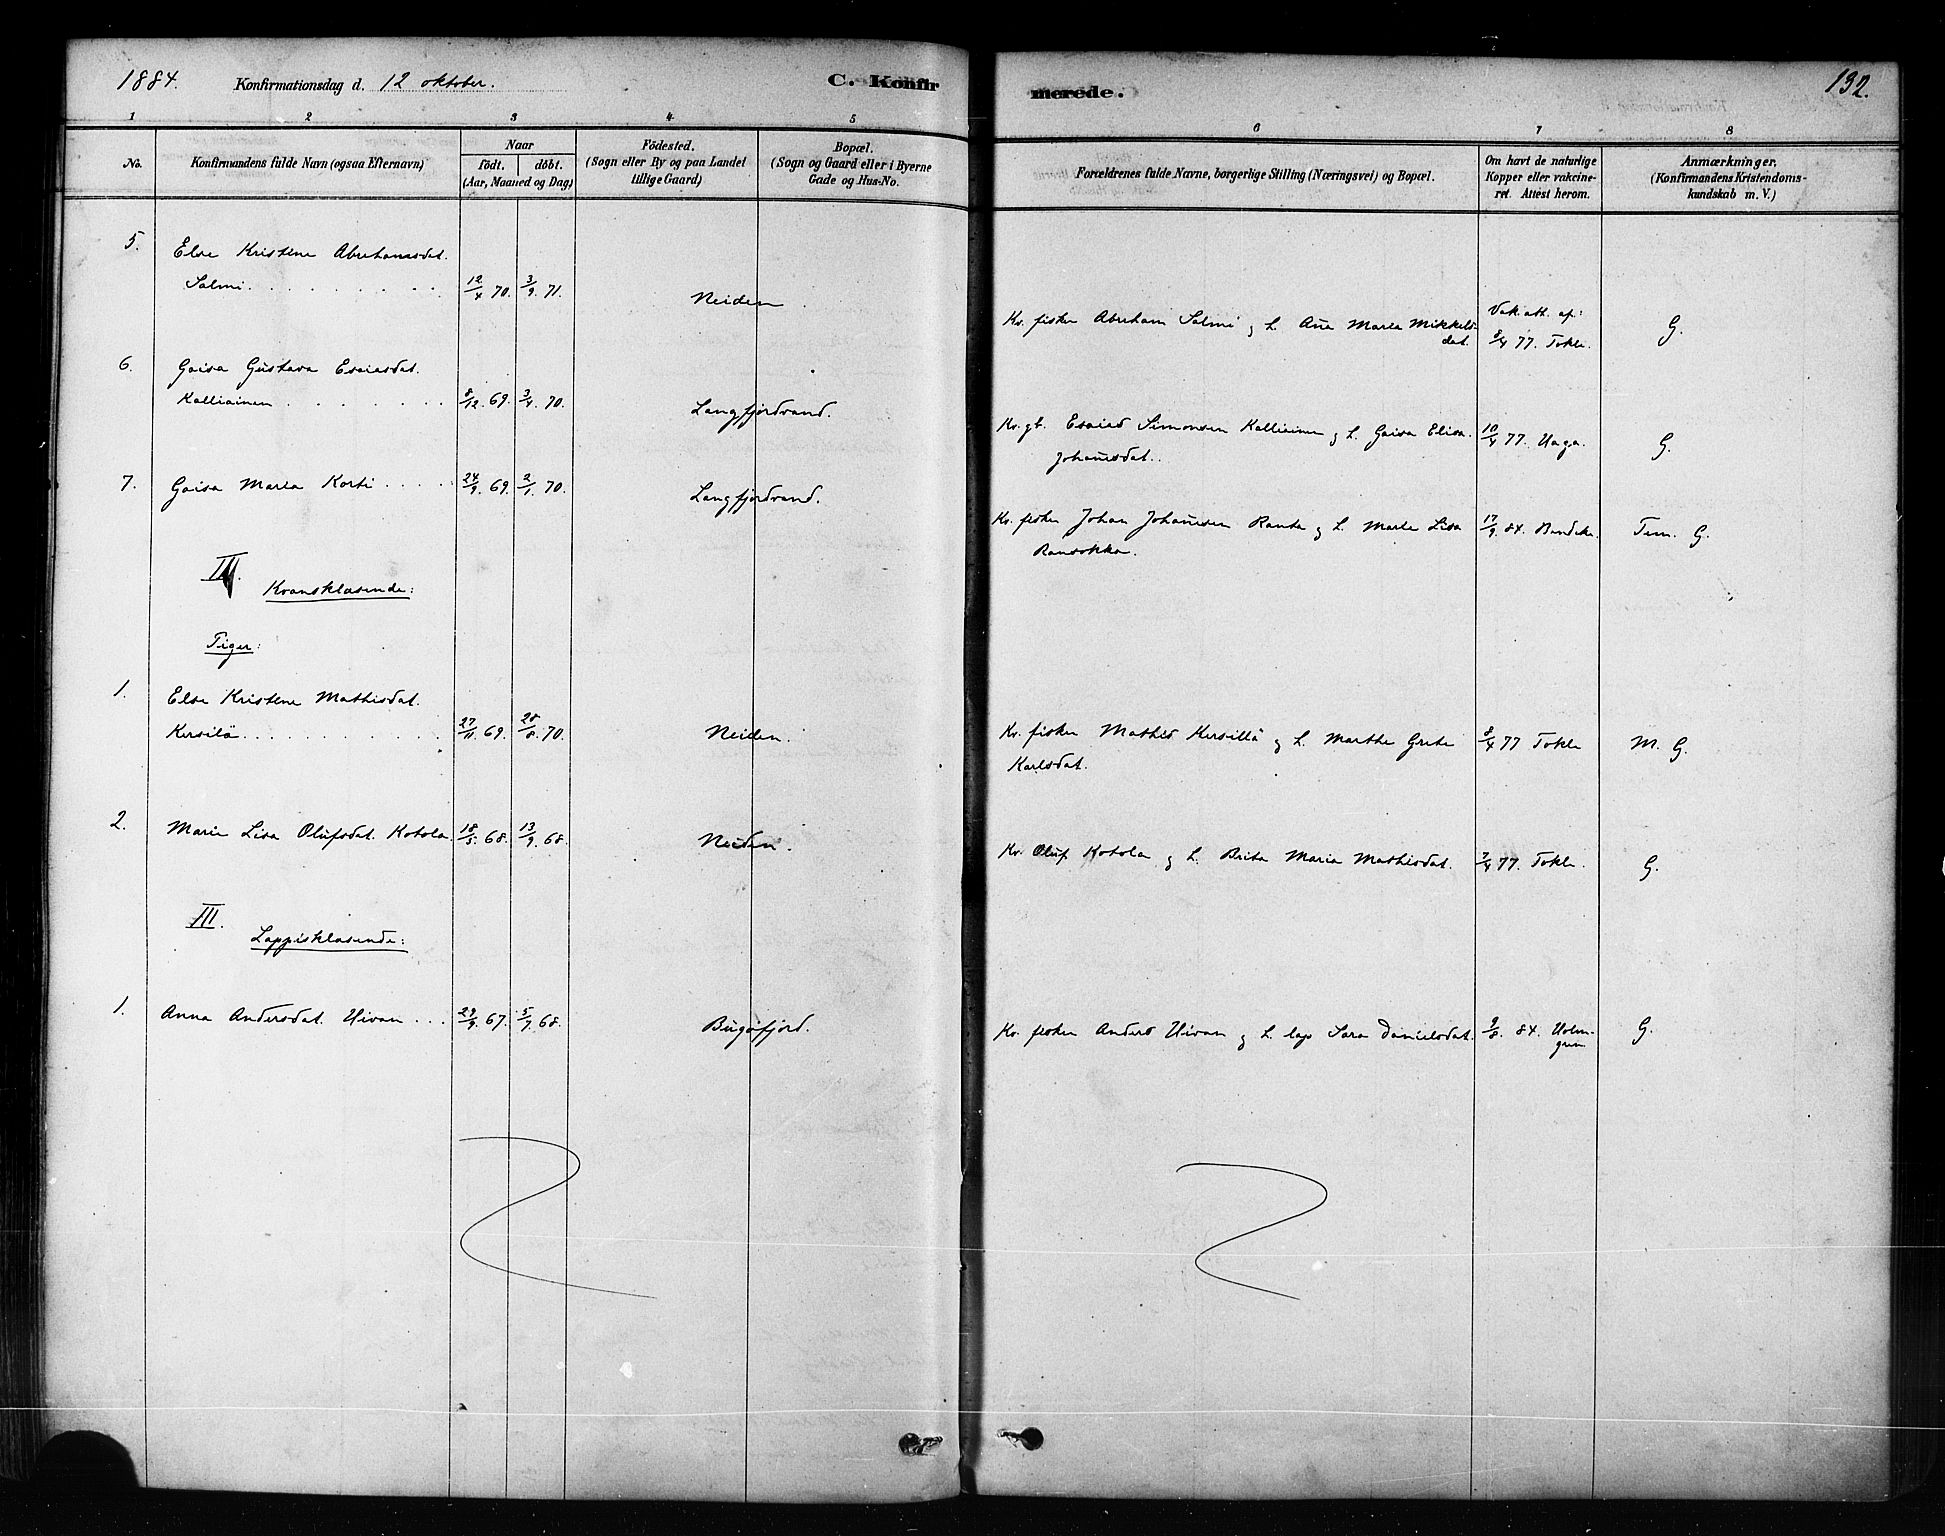 1884. Konfirmationsdag d. 12 oktober. C. Konfirmerede. 132.
1 2 3 4 5 6 7 8
No. Konfirmandens fulde Navn (ogsaa Efternavn) Naar födt. döbt. (Aar, Maaned og Dag) Födested. (Sogn eller By og paa Landet tillige Gaard) Bopæl. (Sogn og Gaard eller i Byerne Gade og Hus-No. Forældrenes fulde Navne, borgerlige Stilling (Næringsvei) og Bopæl. Om havt de naturlige Kopper eller vakcineret. Attest herom. Anmærkninger, (Konfirmandens Kristendomskundskab m. V.)
5. Else Kristine Abrahamsdat.
Salmi. 12/4 70. 3/9 71. Neiden Kv. fisker Abraham Salmi og h. Aña Maria Mikkelsdat. Vak. att. af: 8/4 77. Tokle. G.
6. Gaisa Gustava Esaiasdat.
Kalliainen 8/12 69. 3/4 70. Langfjordvand. Kv. gb. Esaias Simonsen Kalliainen og h. Gaisa Elisa
Johañesdat. 10/4 77. G.
7. Gaisa Maria Korti 24/9 69. 2/1 70. Langfjordvand. Kv. fisker Johan Johañesen Ranta og h. Marie Lisa
17/9. 84. Tem. G.
II.
Kvensklæsende:
Piger:
1. Else Kristine Mathisdat.
Kersilä 27/11 69. 28/8 70. Neiden. Kv. fisker Mathis Kersillä og h. Marthe Grete
Karlsdat. 8/4 77 Tokle M. G.
2. Marie Lisa Olufsdat. Kotola. 18/5 68. 13/9 68. Neiden. Kv. Oluf Kotola og h. Brita Maria Mathisdat. 7/4 77. Tokle. G.
III.
Lappisklæsende:
1. Anna Andersdat. Uivan 29/9 67. 5/7 68. Bugøfjord. Kv. fisker Anders Uivan og h. lap Sara Danielsdat. 9/8. 84. Holmgren G.